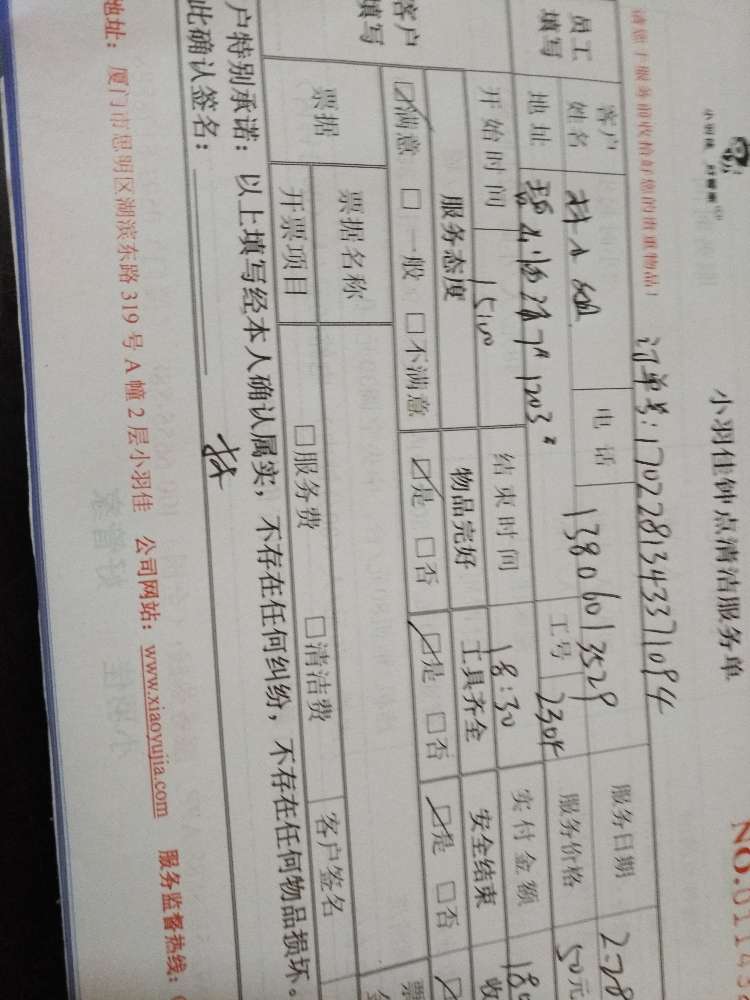 小羽佳 好管家
小羽佳钟点清洁服务单
NO.0114
请您于服务前收拾好您的贵重物品！
订单号：17022813433371094
员工填写
客户姓名 林小姐 电话 13806013529 服务日期 2.28
地址 1203# 工号 2304 服务价格 50元
开始时间 15:00 结束时间 18:30 实付金额
客户填写
服务态度 物品完好 工具齐全 安全结束 收
☑满意 □一般 □不满意 ☑是 □否 ☑是 □否 ☑是 □否
票据 票据名称 票
开票项目 □服务费 □清洁费 客户签名
户特别承诺：以上填写经本人确认属实，不存在任何纠纷，不存在任何物品损坏。
此确认签名：林
地址：厦门市思明区湖滨东路 319 号 A 幢 2 层小羽佳 公司网站：www.xiaoyujia.com 服务监督热线：